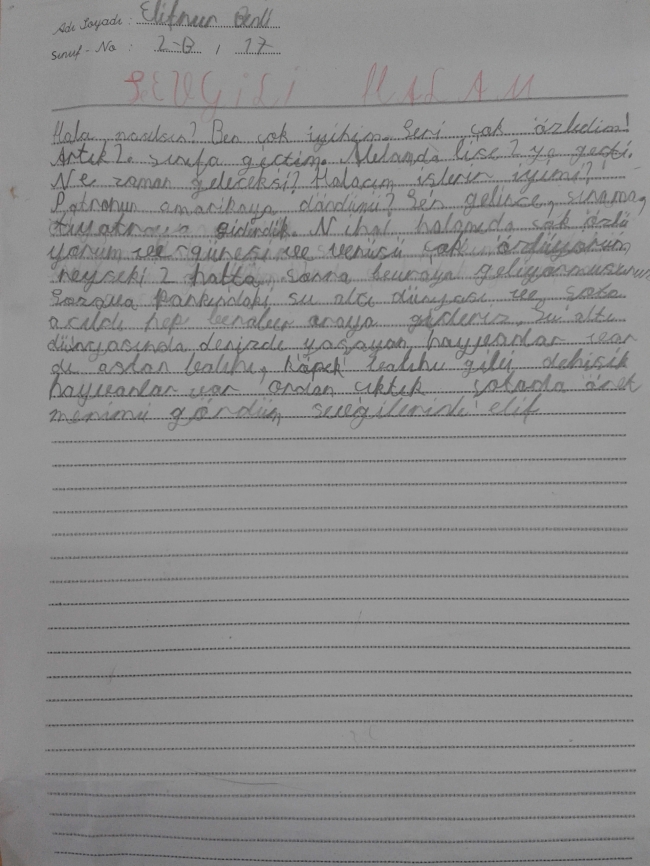 Adı Soyadı: Elifnur
Sınıf - No: 2-B, 17
SEVGİLİ HALAM
Hala nasılsın? Ben çok iyihim. Seni çok özledim!
Artık 2. sınıfa geçtim. Melamda lise 2 ye geçti.
Ne zaman geleceksi? Halacım işlerin iyimi?
Patronun amarikaya döndümü? Sen gelince, sinama,
tiyatroya gidirdik. Nihal halamıda çok özlü
yorum ve güneşi ve venüsü çok özlüyorum
neyseki 2 hafta sonra buraya geliyormusunuz
parkındaki su altı dünyası ve
açıldı hep beraber oraya gideriz. Su altı
dünyasında denizde yaşayan hayvanlar var
dı aslan balıhı, köpek balıhı gibi dehişik
hayvanlar var ordan çıktık örek
menimi gördüm sevgilerinle elif